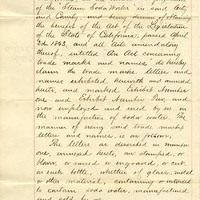 of the Steam Soda Works in said City
and County, and being desirous of obtaining
the benefits of the Act of the Legislature
of the State of California, passed April
3d 1863, and all Acts amendatory
thereof, entitled An Act concerning
trade marks and names do hereby
claim the trade marks letters and
names exhibited, herewith and annexed
hereto, and marked Exhibit Number
one and Exhibit Number Two, and
now employed and used by us in
the manufacture of soda water. The
manner of using said trade marks
letters and names, is as follows;
The letters as described in number
one, annexed hereto, are stamped, or
blown, or sunred or engraved, or cut
on each bottle, whether of glass, metal
or other material, containing or intended
to contain soda water, manufactured
and sold by us